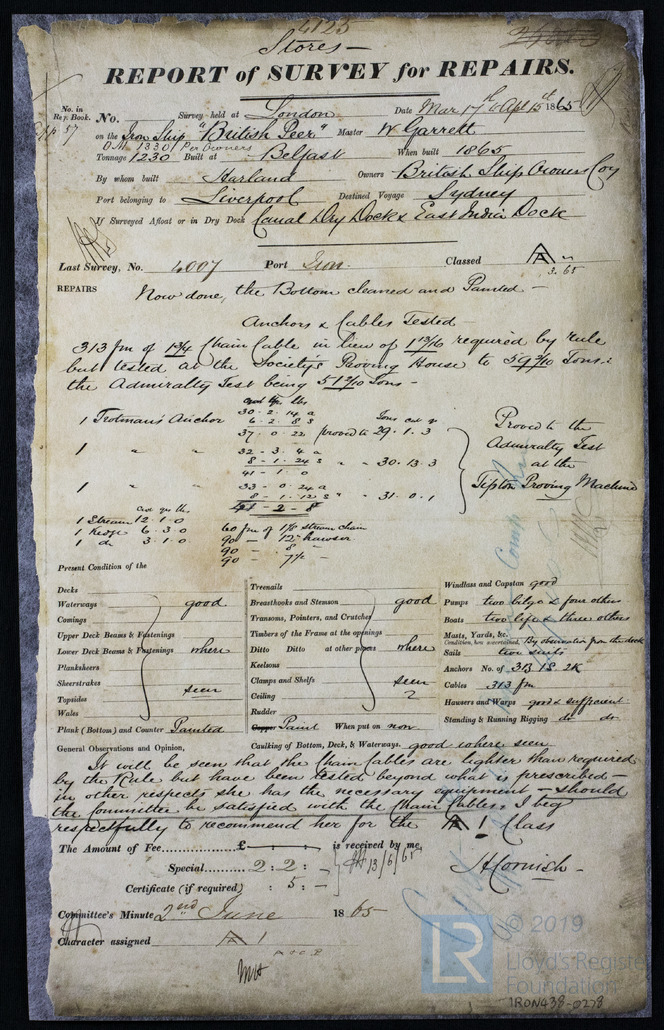 4125
Stores —
REPORT of SURVEY for REPAIRS.
No. in Rep. Book. No. Survey held at London Date Mar 17th & Apl 15th 1865
57 on the Iron Ship "British Peer" Master W Garrett
O.M. 1330 Per Owners
Tonnage 1230 Built at Belfast When built 1865
By whom built Harland Owners British Ship Owners Coy
Port belonging to Liverpool Destined Voyage Sydney
If Surveyed Afloat or in Dry Dock Canal Dry Dock & East India Dock
Last Survey, No. 4007 Port Iron Classed A
3.65
REPAIRS Now done, the Bottom cleaned and Painted —
Anchors & Cables Tested
313 fm of 1 3/4 Chain Cable in lieu of 1 13/16 required by rule
but tested at the Society's Proving House to 59 2/10 Tons:
the Admiralty Test being 51 2/10 Tons —
cwt qrs lbs
1 Trotman's Anchor 30 . 2 . 14 a
6 . 2 . 8 s Tons cwt q
37 . 0 . 22 proved to 29 . 1 . 3
1 " " 32 - 3 . 4 a
8 - 1 - 24 s " - 30 . 13 . 3
41 - 1 . 0
1 " " 33 - 0 . 24 a
8 - 1 - 12 s " - 31 . 0 . 1
41 - 2 - 8
Proved to the
Admiralty Test
at the
Tipton Proving Machine
cwt qrs lb
1 Stream 12 . 1 . 0 60 fm of 1 1/16 stream chain
1 Kedge 6 . 3 . 0 90 — 12 " hawser
1 do 3 . 1 . 0 90 — 8 " —
90 — 7 1/2 —
Present Condition of the
Decks
Waterways good
Comings
Upper Deck Beams & Fastenings
Lower Deck Beams & Fastenings where
Planksheers
Sheerstrakes
Topsides seen
Wales
Plank (Bottom) and Counter Painted
Treenails
Breasthooks and Stemson good
Transoms, Pointers, and Crutches
Timbers of the Frame at the openings
Ditto Ditto at other places where
Keelsons
Clamps and Shelfs seen
Ceiling
Rudder
Copper Paint When put on now
Windlass and Capstan good
Pumps two bilge & four others
Boats two life & three others
Masts, Yards, &c.
Condition, how ascertained, By observation from the deck
Sails two suits
Anchors No. of 3 B 1 S. 2 K
Cables 313 fm
Hausers and Warps good & sufficient
Standing & Running Rigging do do
General Observations and Opinion, Caulking of Bottom, Deck, & Waterways. good where seen
It will be seen that the Chain Cables are lighter than required
by the Rule but have been tested beyond what is prescribed —
in other respects she has the necessary equipment — should
the Committee be satisfied with the Chain Cables, I beg
respectfully to recommend her for the A 1 Class
The Amount of Fee £ is received by me,
Special 2 : 2 : — 13/6/65
Certificate (if required) : 5 : — H Cornish —
Committee's Minute 2nd June 1865
Character assigned A 1
© 2019
LR
Lloyd's Register
Foundation
IRON438-0278